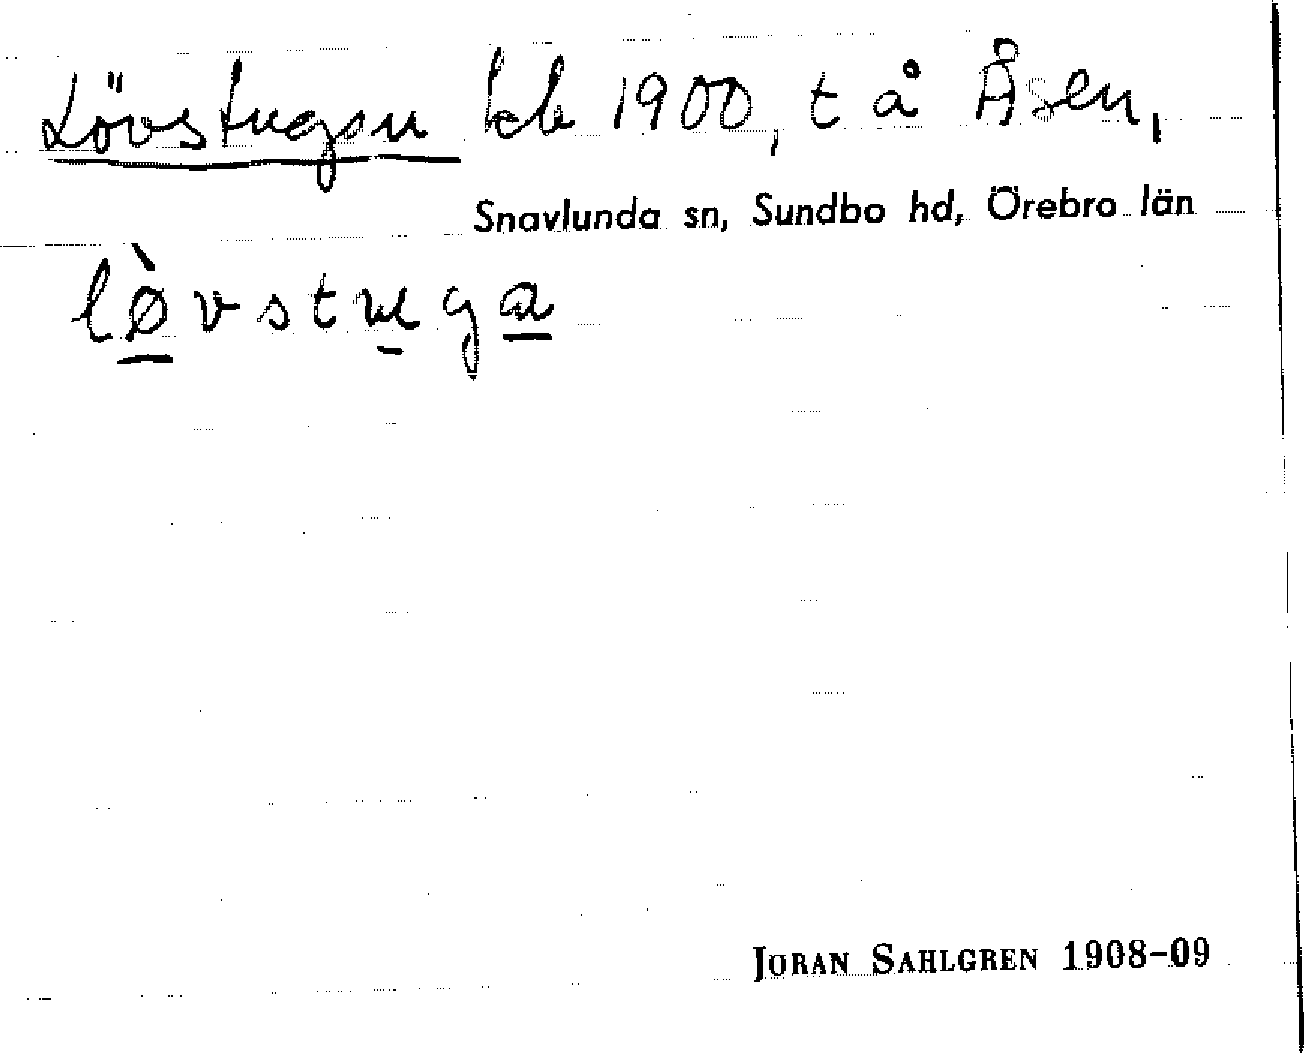 Lövstugan beb 1900, t å Åsen,
Snavlunda sn, Sundbo hd, Örebro län
lø̀vstuga
JÖRAN SAHLGREN 1908-09